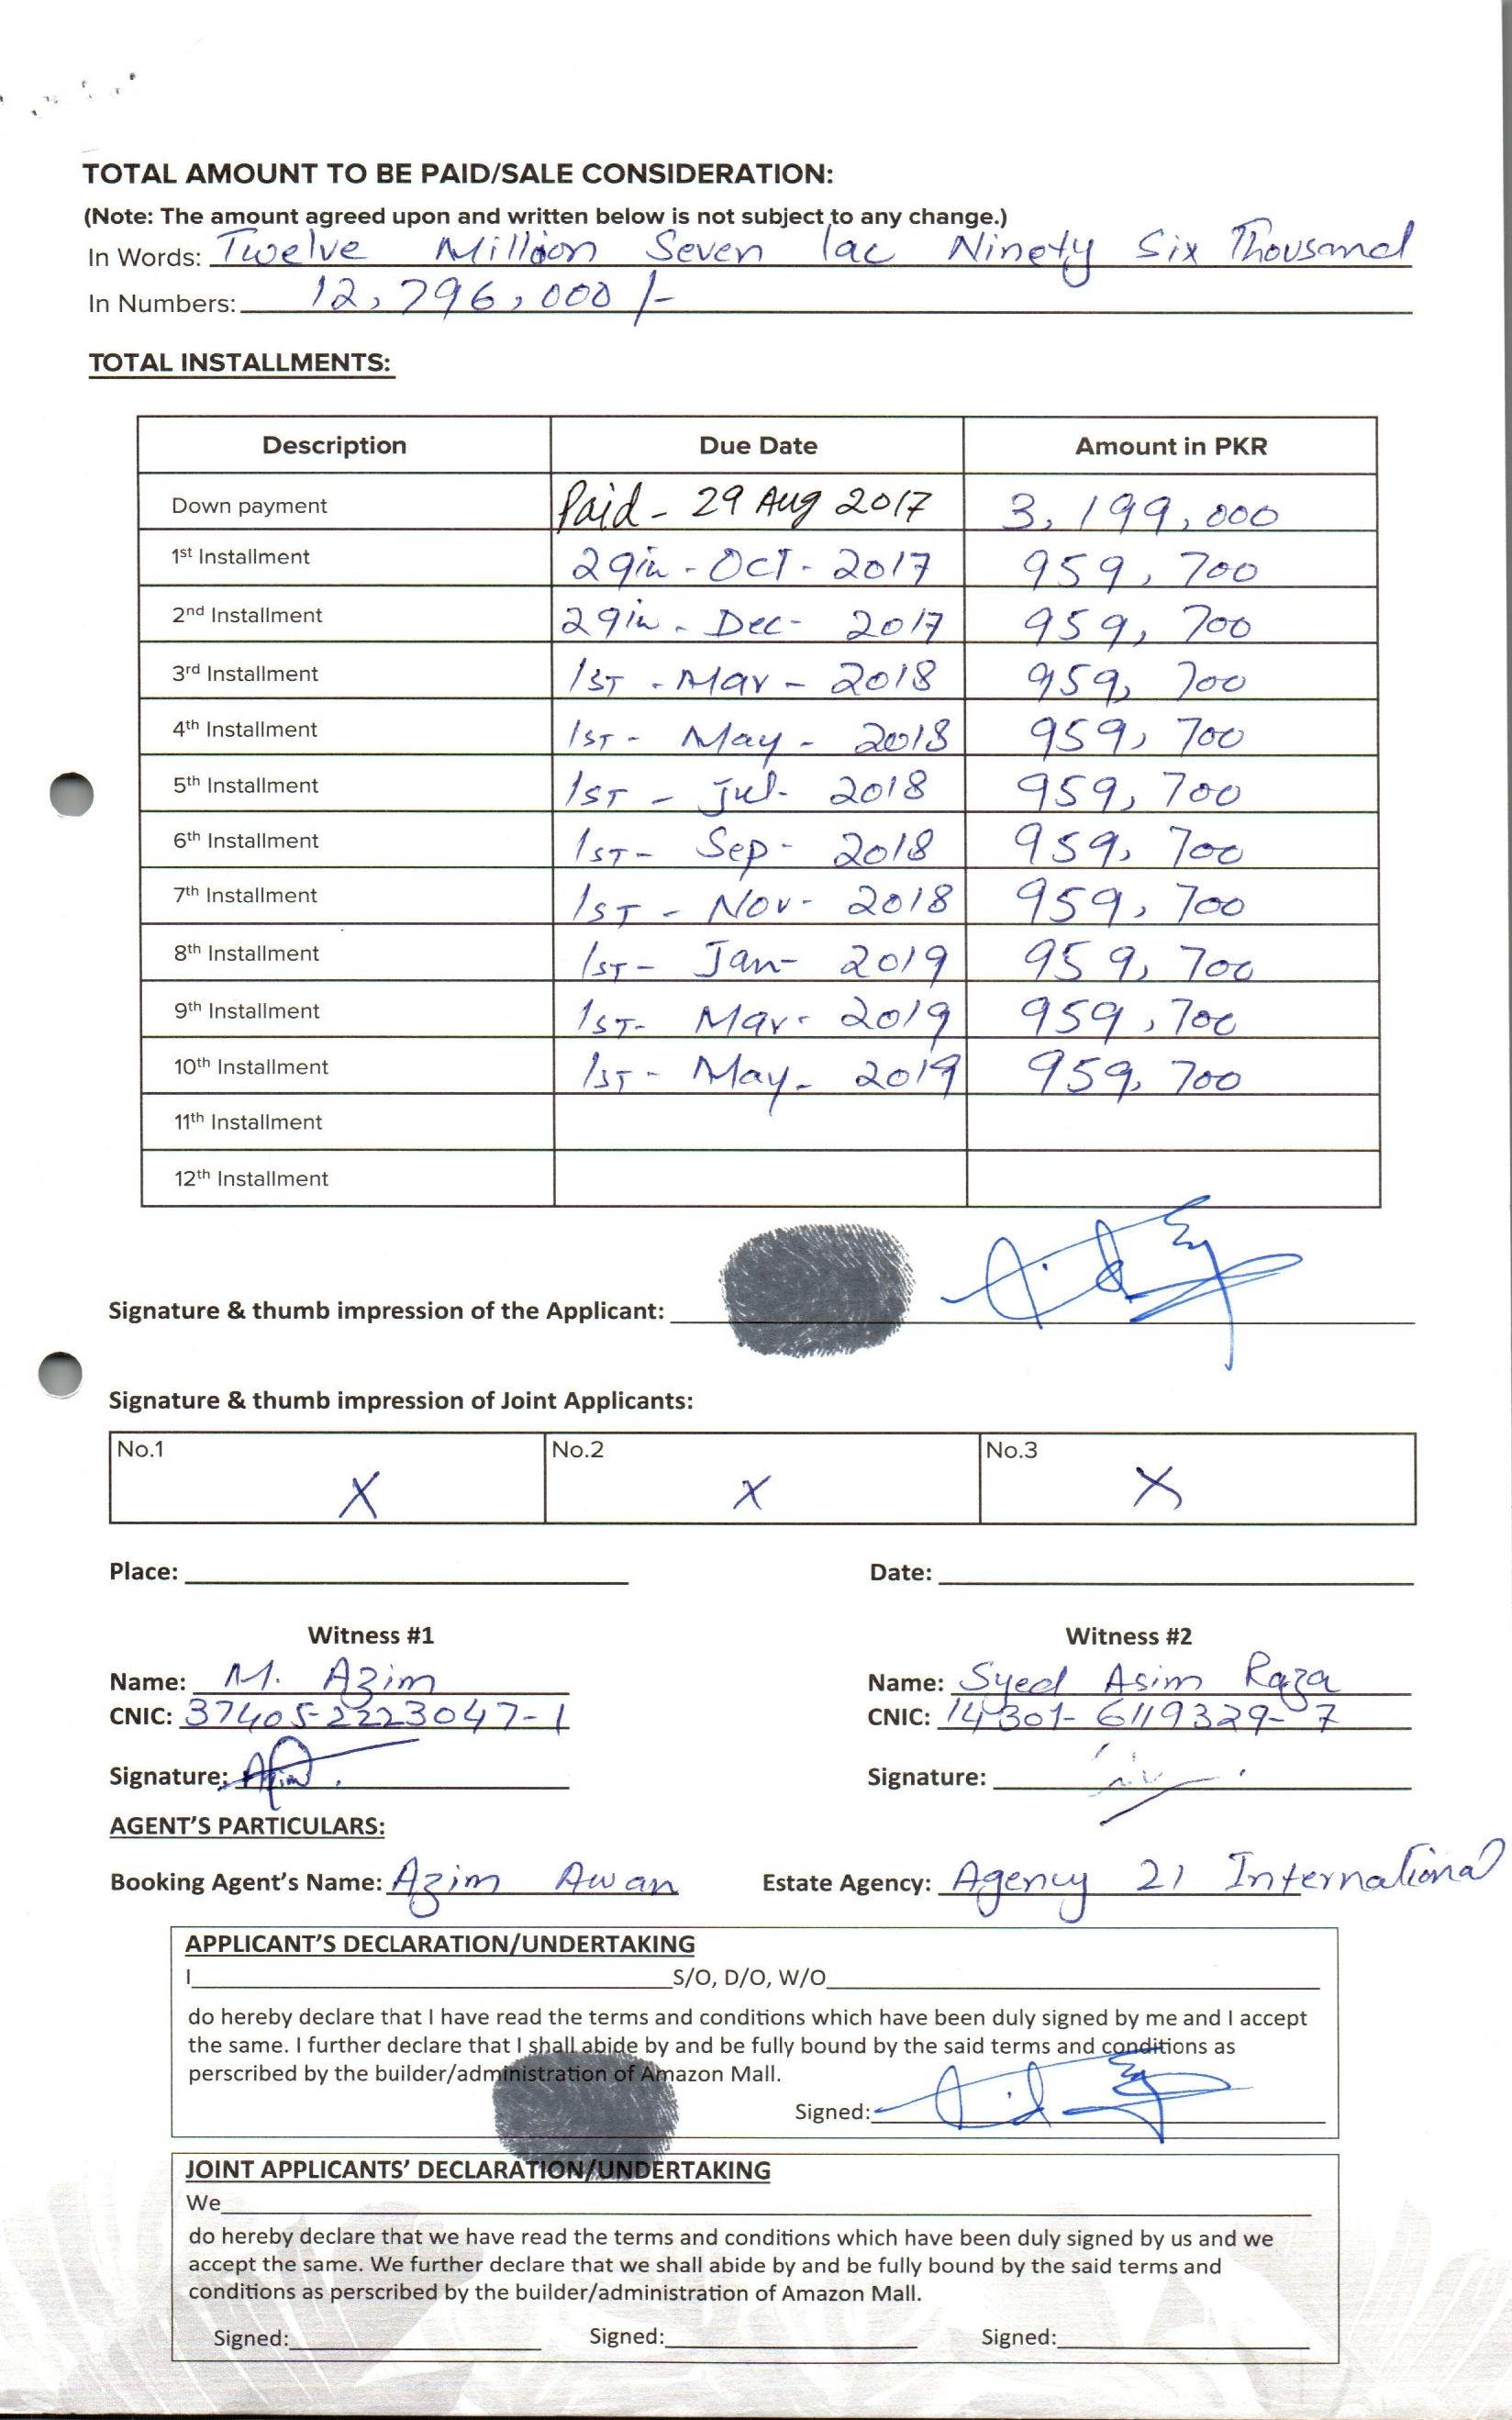 TOTAL AMOUNT TO BE PAID/SALE CONSIDERATION:
(Note: The amount agreed upon and written below is not subject to any change.)
In Words: Twelve Million Seven lac Ninety Six Thousand
In Numbers: 12,796,000/-
TOTAL INSTALLMENTS:
Description Due Date Amount in PKR
Down payment Paid - 29 Aug 2017 3,199,000
1st Installment 29th - Oct - 2017 959,700
2nd Installment 29th - Dec - 2017 959,700
3rd Installment 1ST - Mar - 2018 959,700
4th Installment 1ST - May - 2018 959,700
5th Installment 1ST - Jul - 2018 959,700
6th Installment 1ST - Sep - 2018 959,700
7th Installment 1ST - Nov - 2018 959,700
8th Installment 1ST - Jan - 2019 959,700
9th Installment 1ST - Mar - 2019 959,700
10th Installment 1ST - May - 2019 959,700
11th Installment
12th Installment
Signature & thumb impression of the Applicant:
Signature & thumb impression of Joint Applicants:
No.1 X No.2 X No.3 X
Place: Date:
Witness #1 Witness #2
Name: M. Azim Name: Syed Asim Raza
CNIC: 37405-2223047-1 CNIC: 14301-6119329-7
Signature: Azim Signature:
AGENT'S PARTICULARS:
Booking Agent's Name: Azim Awan Estate Agency: Agency 21 International
APPLICANT'S DECLARATION/UNDERTAKING
I S/O, D/O, W/O
do hereby declare that I have read the terms and conditions which have been duly signed by me and I accept
the same. I further declare that I shall abide by and be fully bound by the said terms and conditions as
perscribed by the builder/administration of Amazon Mall.
Signed:
JOINT APPLICANTS' DECLARATION/UNDERTAKING
We
do hereby declare that we have read the terms and conditions which have been duly signed by us and we
accept the same. We further declare that we shall abide by and be fully bound by the said terms and
conditions as perscribed by the builder/administration of Amazon Mall.
Signed: Signed: Signed: